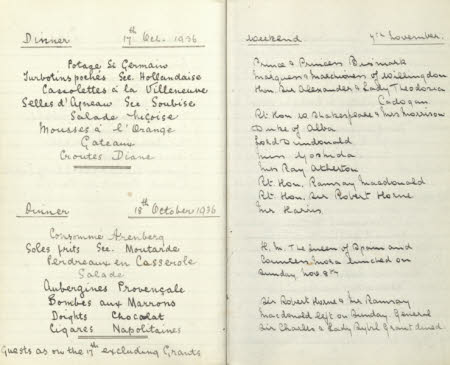 Dinner 17th Oct. 1936
Potage St Germans
Turbotins pochés Sce. Hollandaise
Cassolettes à la Villeneuve
Selles d'Agneau Sce Soubise
Salade Niçoise
Mousses à l'Orange
Gateaux
Croutes Diane
Dinner 18th October 1936
Consommé Arenberg
Soles frits Sce. Moutarde
Perdreaux en Casserole
Salade
Aubergines Provençale
Bombes aux Marrons
Doights Chocolat
Cigares Napolitaines
Guests as on the 17th excluding Grants
Weekend 7th November.
Prince & Princess Bismark
Marquess & Marchioness of Willingdon
Hon. Sir Alexander & Lady Theodosia
Cadogan
Rt. Hon W. Shakespeare & Mrs Morrison
Duke of Alba
Lord Dundonald
Miss Yoshida
Mrs Ray Atherton
Rt. Hon. Ramsay Macdonald
Rt. Hon. Sir Robert Horne
Mr Harris.
H. M. The Queen of Spain and
Countess Mora lunched on
Sunday Nov. 8th
Sir Robert Horne & Mr Ramsay
Macdonald left on Sunday. General
Sir Charles & Lady Sybil Grant dined.